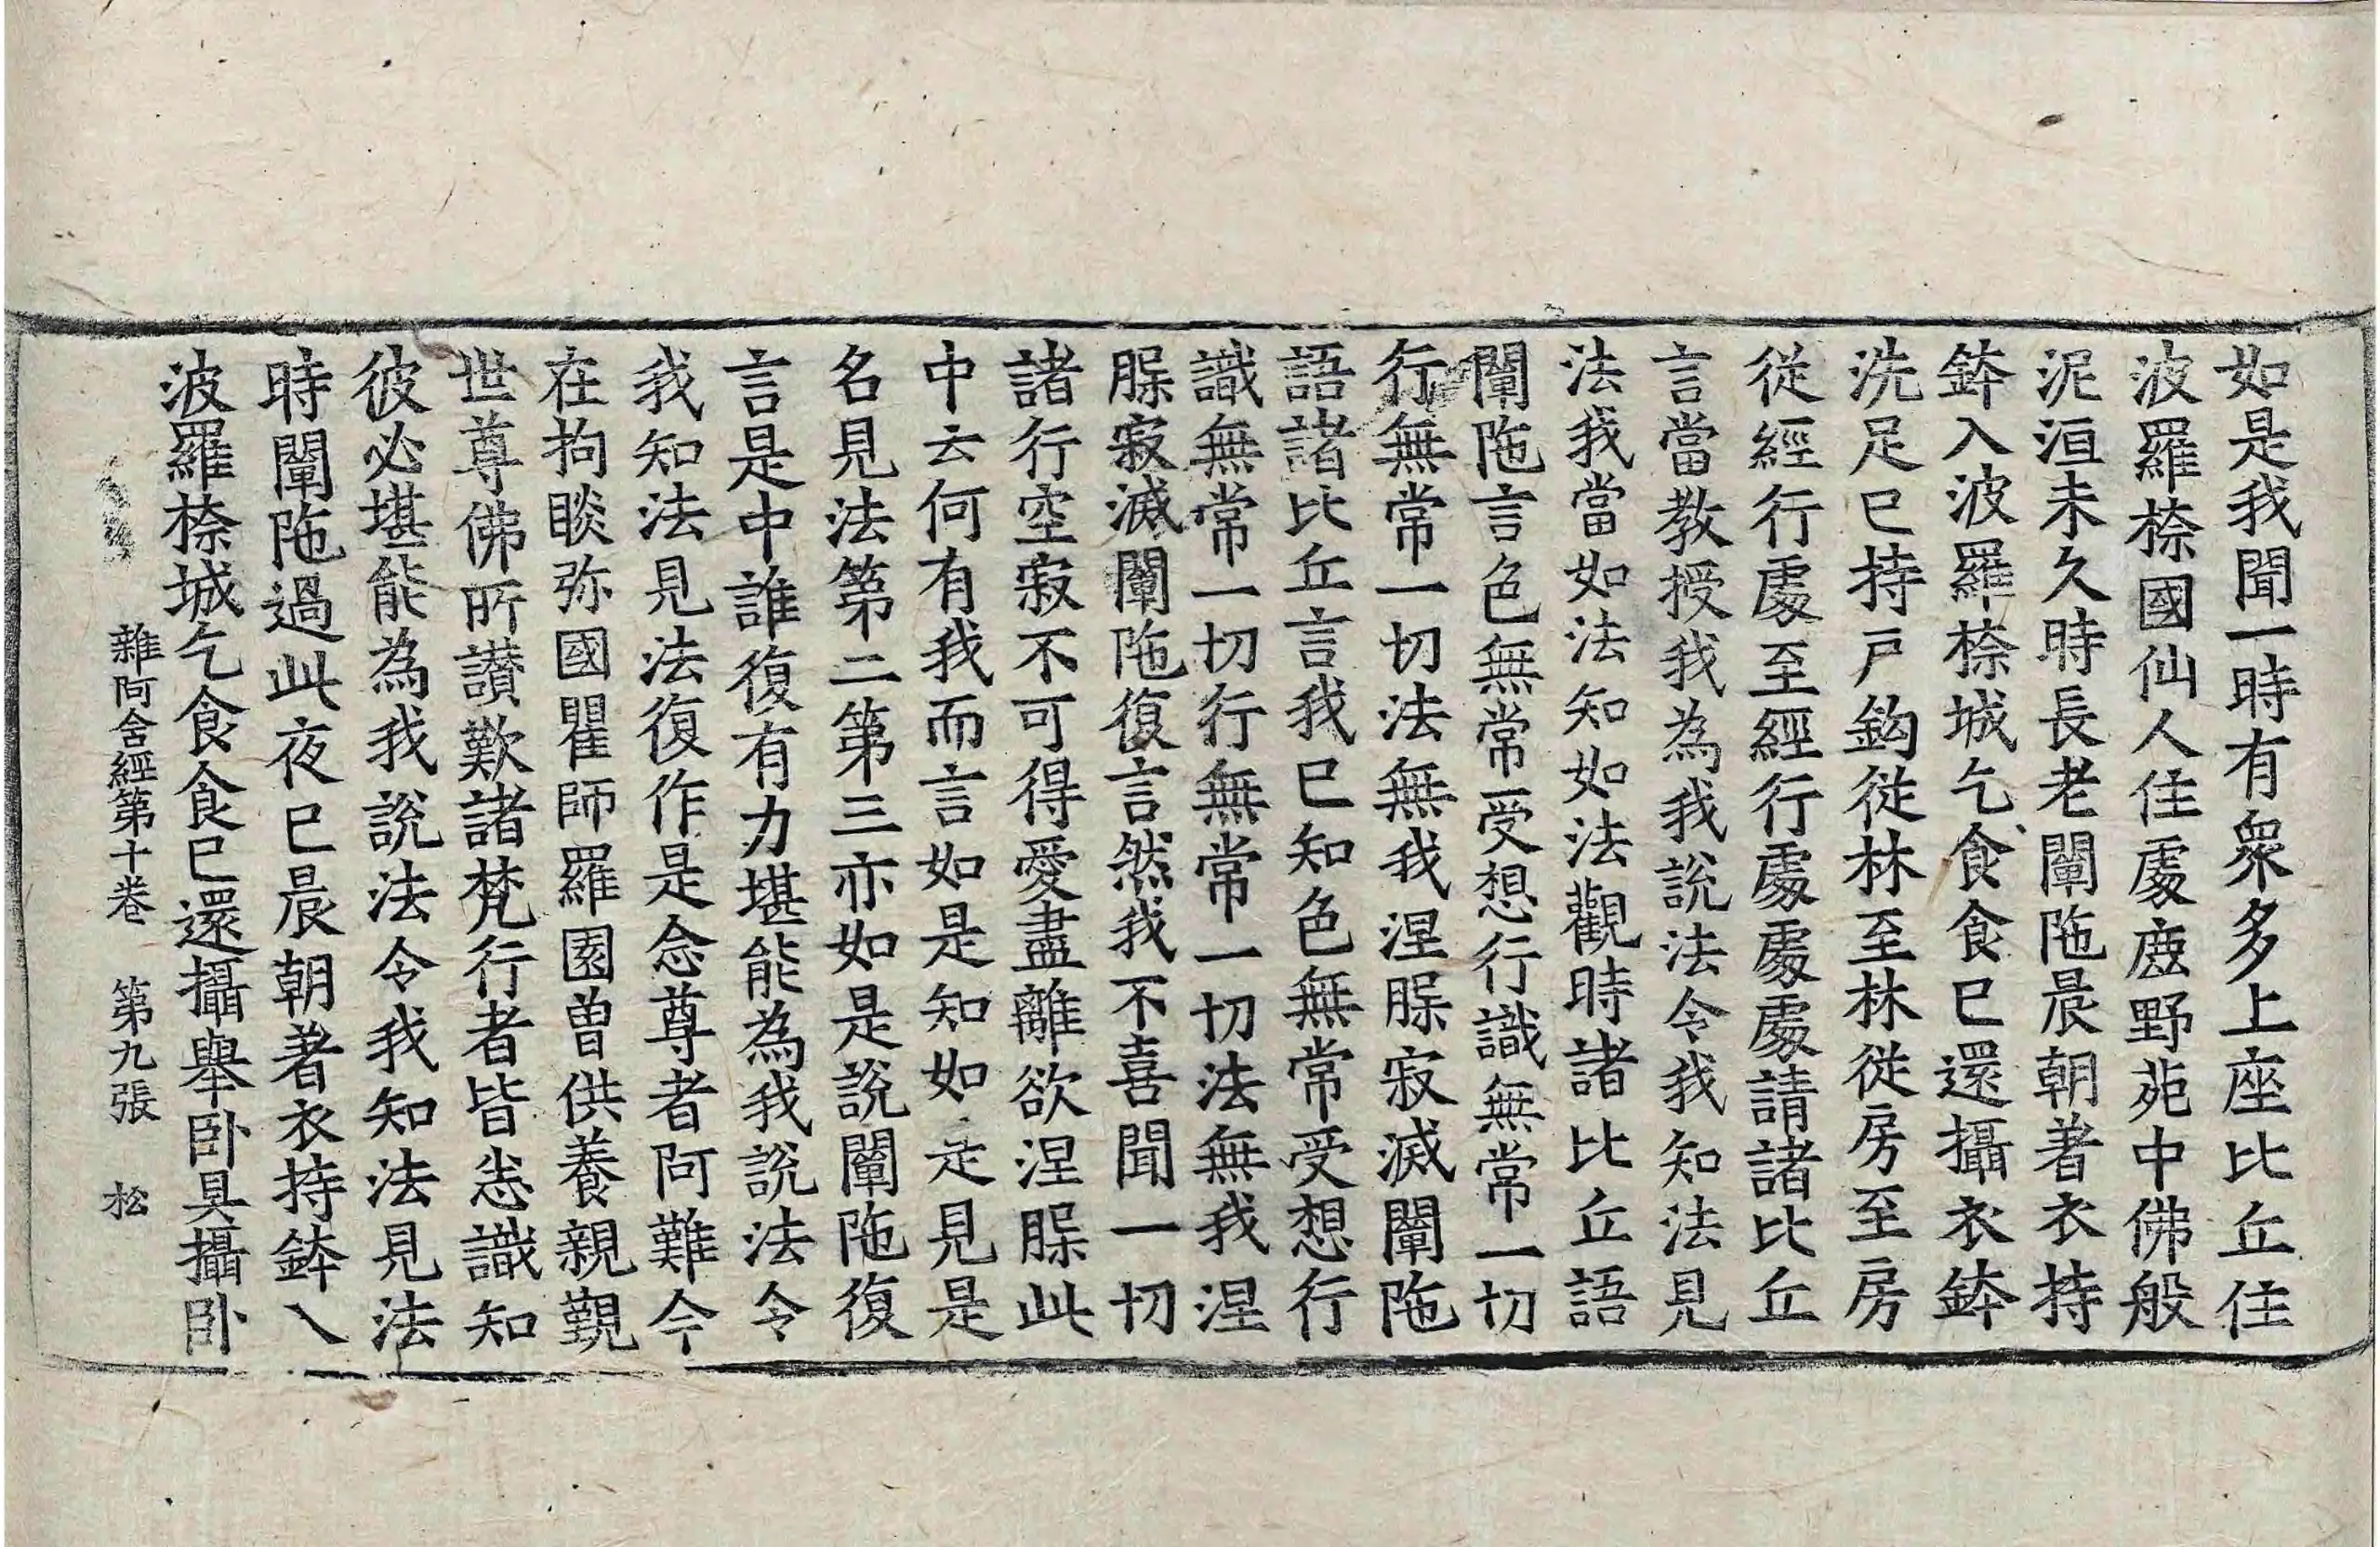 如是我聞一時有衆多上座比丘住
波羅㮈國仙人住處鹿野苑中佛般
泥洹未久時長老闡陁晨朝著衣持
鉢入波羅㮈城乞食食已還攝衣鉢
洗足已持戸鈎從林至林從房至房
從經行處至經行處處處請諸比丘
言當教授我為我說法令我知法見
法我當如法知如法觀時諸比丘語
闡陁言色無常受想行識無常一切
行無常一切法無我涅膎寂滅闡陁
語諸比丘言我已知色無常受想行
識無常一切行無常一切法無我涅
膎寂滅闡陁復言然我不喜聞一切
諸行空寂不可得愛盡離欲涅膎此
中云何有我而言如是知如是見是
名見法第二第三亦如是說闡陁復
言是中誰復有力堪能為我說法令
我知法見法復作是念尊者阿難今
在拘睒弥國瞿師羅園曽供養親覲
世尊佛所讃歎諸梵行者皆悉識知
彼必堪能為我說法令我知法見法
時闡陁過此夜已晨朝著衣持鉢入
波羅㮈城乞食食已還攝舉卧具攝卧
雜阿含經第十卷 第九張 松